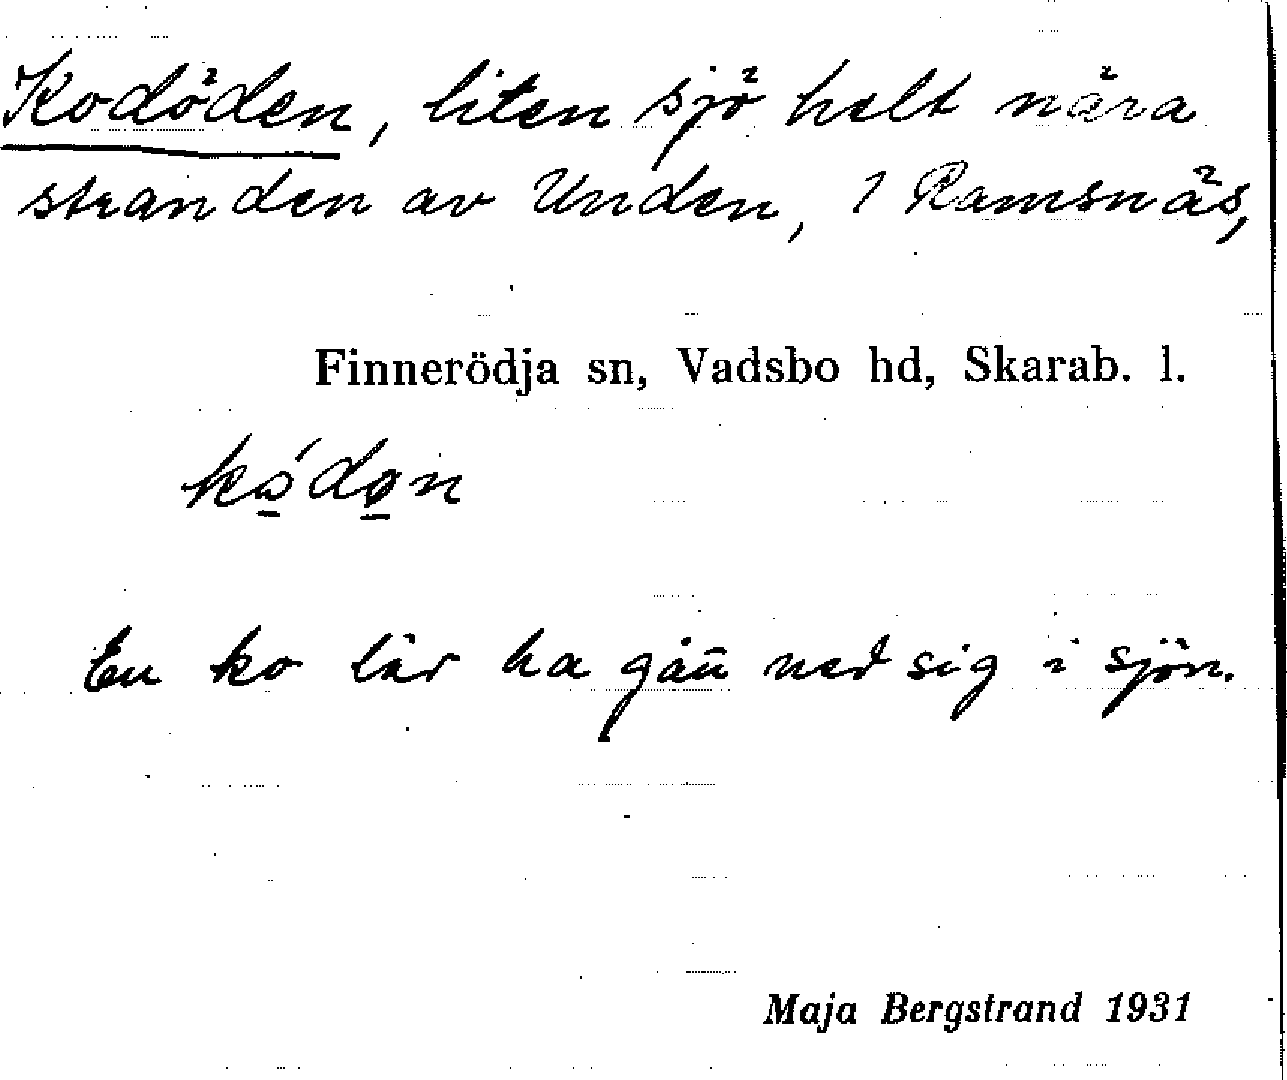 Kodöden, liten sjö helt nära
stranden av Unden, 1 Ramsnäs,
Finnerödja sn, Vadsbo hd, Skarab. l.
En ko lär ha gått ned sig i sjön.
Maja Bergstrand 1931